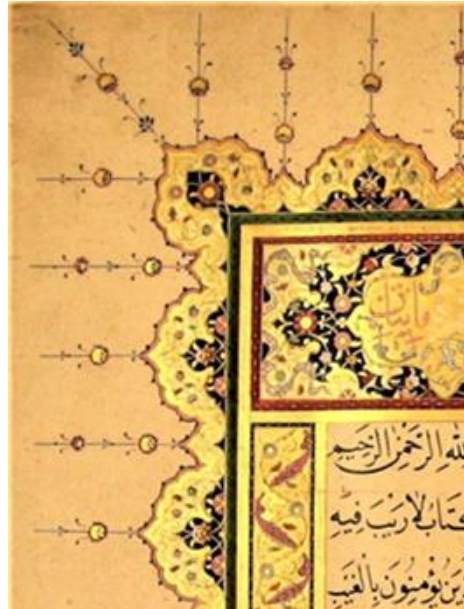 مايتان
للهِ الرَّحْمٰنِ الرَّحِيمِ
كِتَابُ لَا رَيْبَ فِيهِ
ينَ يُؤْمِنُونَ بِالْغَيْبِ